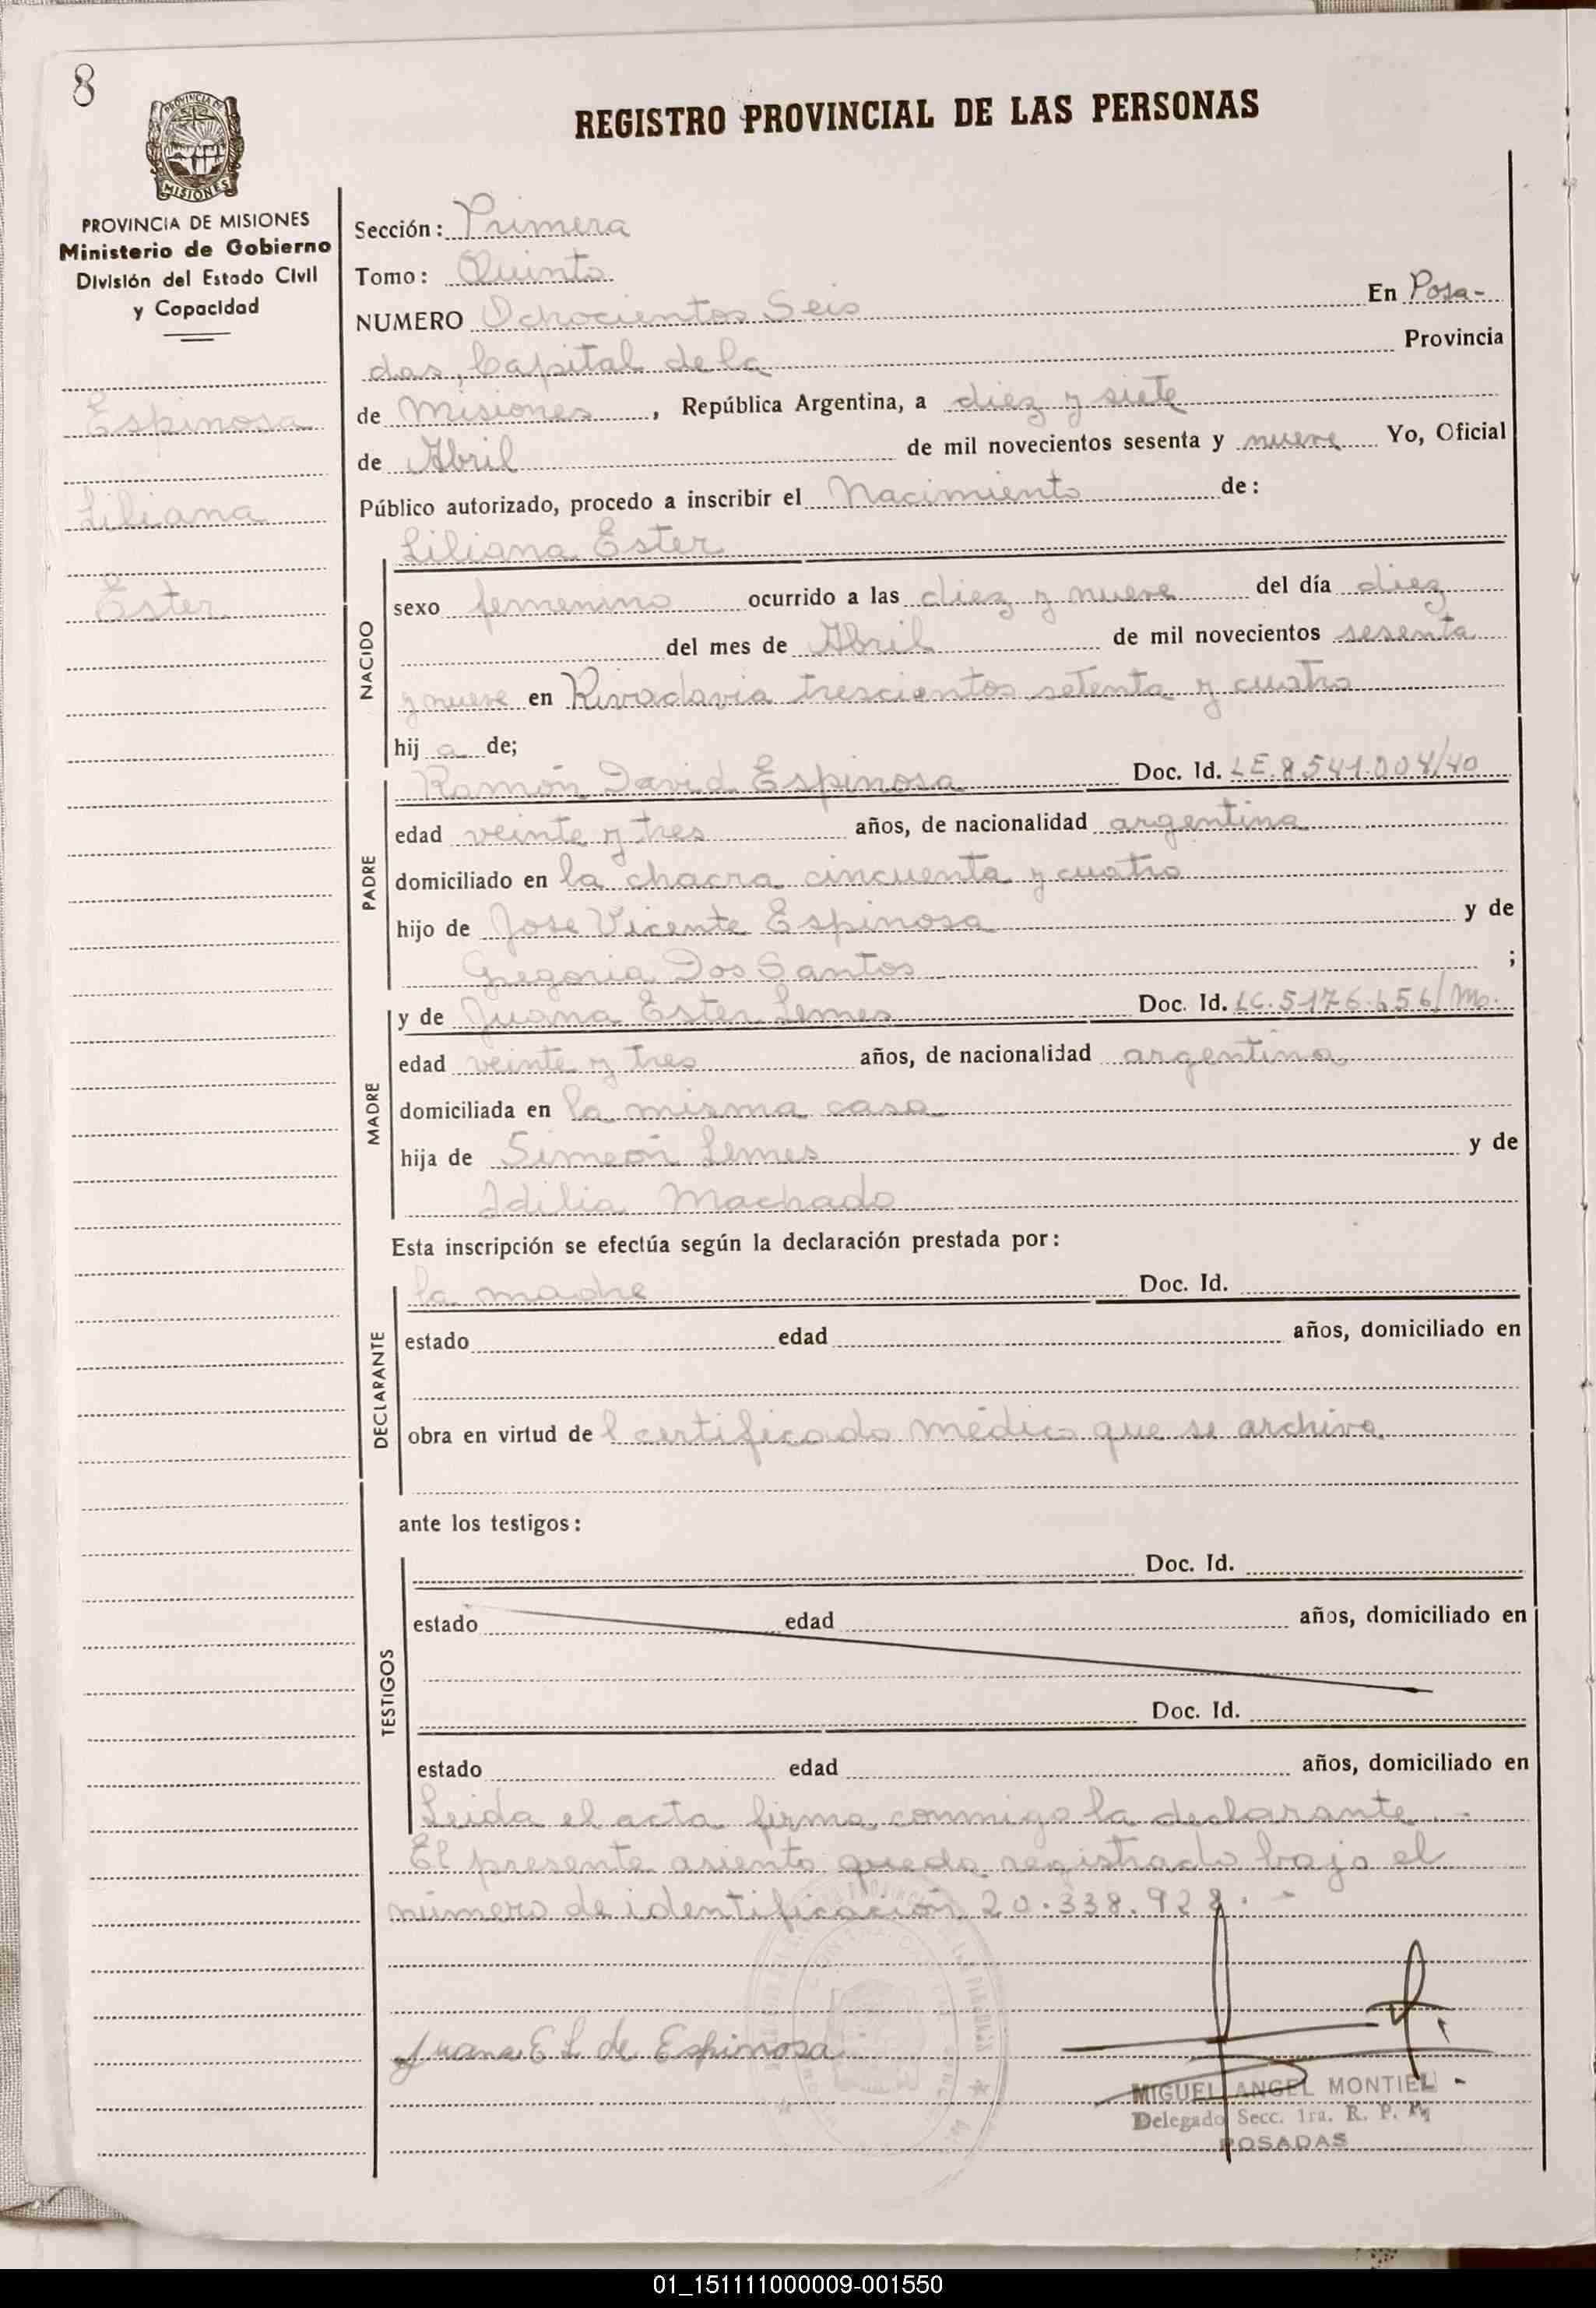 8
PROVINCIA DE
MISIONES
REGISTRO PROVINCIAL DE LAS PERSONAS
PROVINCIA DE MISIONES
Ministerio de Gobierno
División del Estado Civil
y Capacidad
Espinosa
Liliana
Ester
Sección: Primera
Tomo: Quinto
NUMERO Ochocientos Seis En Posa-
das, Capital de la Provincia
de Misiones, República Argentina, a diez y siete
de Abril de mil novecientos sesenta y nueve Yo, Oficial
Público autorizado, procedo a inscribir el Nacimiento de:
NACIDO
Liliana Ester
sexo femenino ocurrido a las diez y nueve del día diez
del mes de Abril de mil novecientos sesenta
y nueve en Rivadavia trescientos setenta y cuatro
hij a de;
PADRE
Ramón David Espinosa Doc. Id. LE.8.541.004/40
edad veinte y tres años, de nacionalidad argentina
domiciliado en la chacra cincuenta y cuatro
hijo de Jose Vicente Espinosa y de
Gregoria Dos Santos ;
MADRE
y de Juana Ester Lemes Doc. Id. LC.5176.656/Mo.
edad veinte y tres años, de nacionalidad argentina
domiciliada en la misma casa
hija de Simeón Lemes y de
Idilia Machado
Esta inscripción se efectúa según la declaración prestada por:
DECLARANTE
la madre Doc. Id.
estado edad años, domiciliado en
obra en virtud de l certificado médico que se archiva.
ante los testigos:
TESTIGOS
Doc. Id.
estado edad años, domiciliado en
Doc. Id.
estado edad años, domiciliado en
Leida el acta firma conmigo la declarante.-
El presente asiento queda registrado bajo el
número de identificación 20.338.928.-
Juana E L de Espinosa
MIGUEL ANGEL MONTIEL
Delegado Secc. 1ra. R. P. P.
POSADAS
01_151111000009-001550